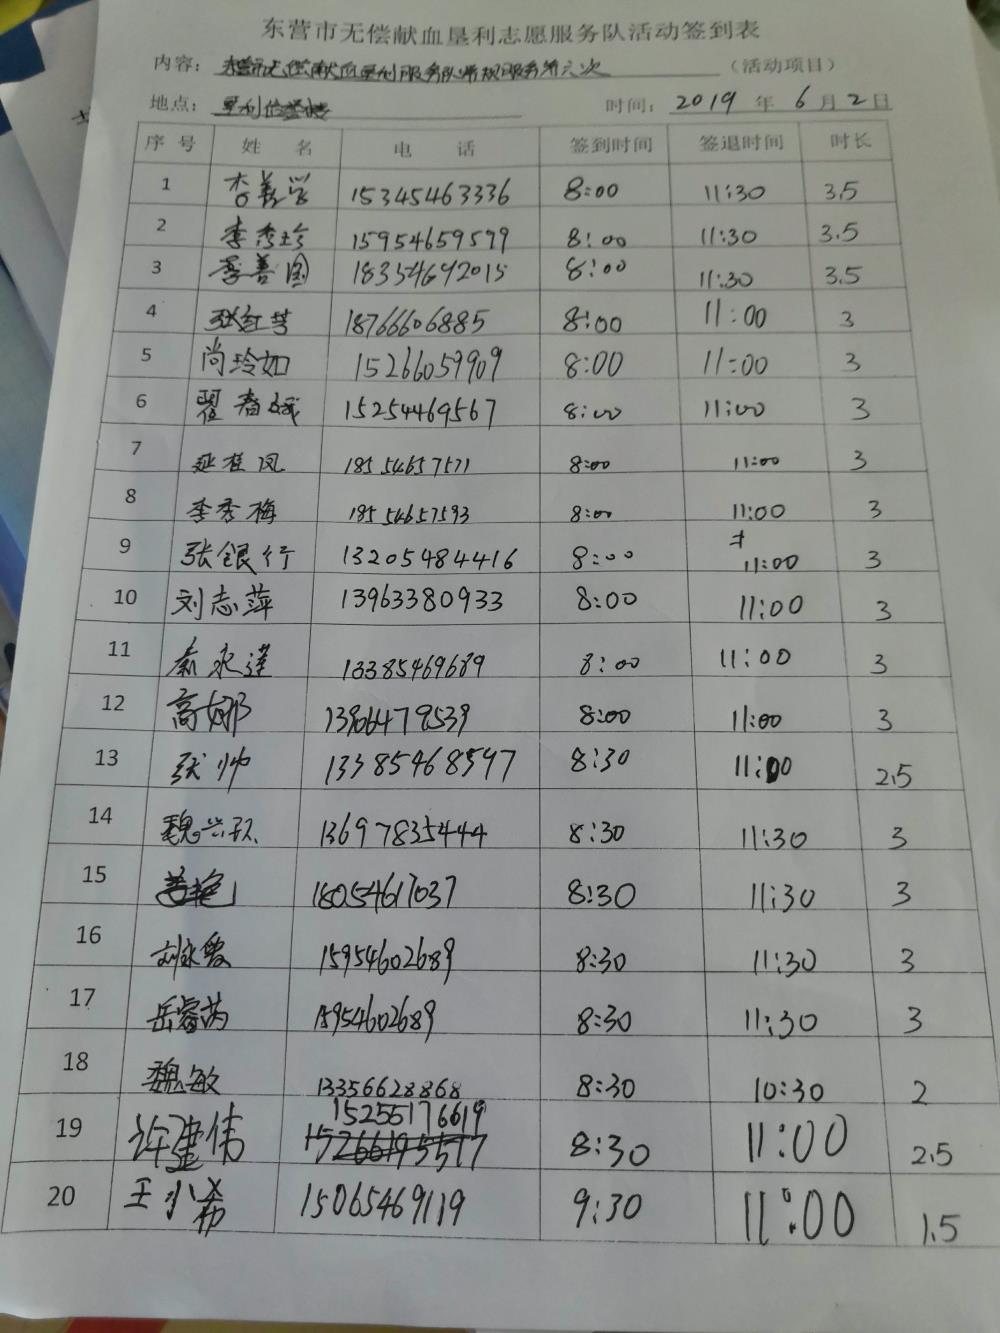 东营市无偿献血垦利志愿服务队活动签到表
内容：东营市无偿献血垦利服务队常规服务第六次（活动项目）
地点：垦利 时间：2019年6月2日
序号 姓名 电话 签到时间 签退时间 时长
1 李善学 15345463336 8:00 11:30 3.5
2 李秀珍 15954659599 8:00 11:30 3.5
3 李善国 18354692015 8:00 11:30 3.5
4 张红芳 18766606885 8:00 11:00 3
5 尚玲如 15266059909 8:00 11:00 3
6 翟春娥 15254469567 8:00 11:00 3
7 延桂凤 18554657571 8:00 11:00 3
8 李秀梅 18554657593 8:00 11:00 3
9 张银行 13205484416 8:00 11:00 3
10 刘志萍 13963380933 8:00 11:00 3
11 秦永莲 13385469689 8:00 11:00 3
12 高娜 13906479539 8:00 11:00 3
13 张帅 13385468597 8:30 11:00 2.5
14 魏兴 13697835444 8:30 11:30 3
15 18054617037 8:30 11:30 3
16 刘永霞 15954602689 8:30 11:30 3
17 岳睿芮 15954602689 8:30 11:30 3
18 魏敏 13356628868 8:30 10:30 2
15255176619
19 许建伟 15266195517 8:30 11:00 2.5
20 王小希 15065469119 9:30 11:00 1.5